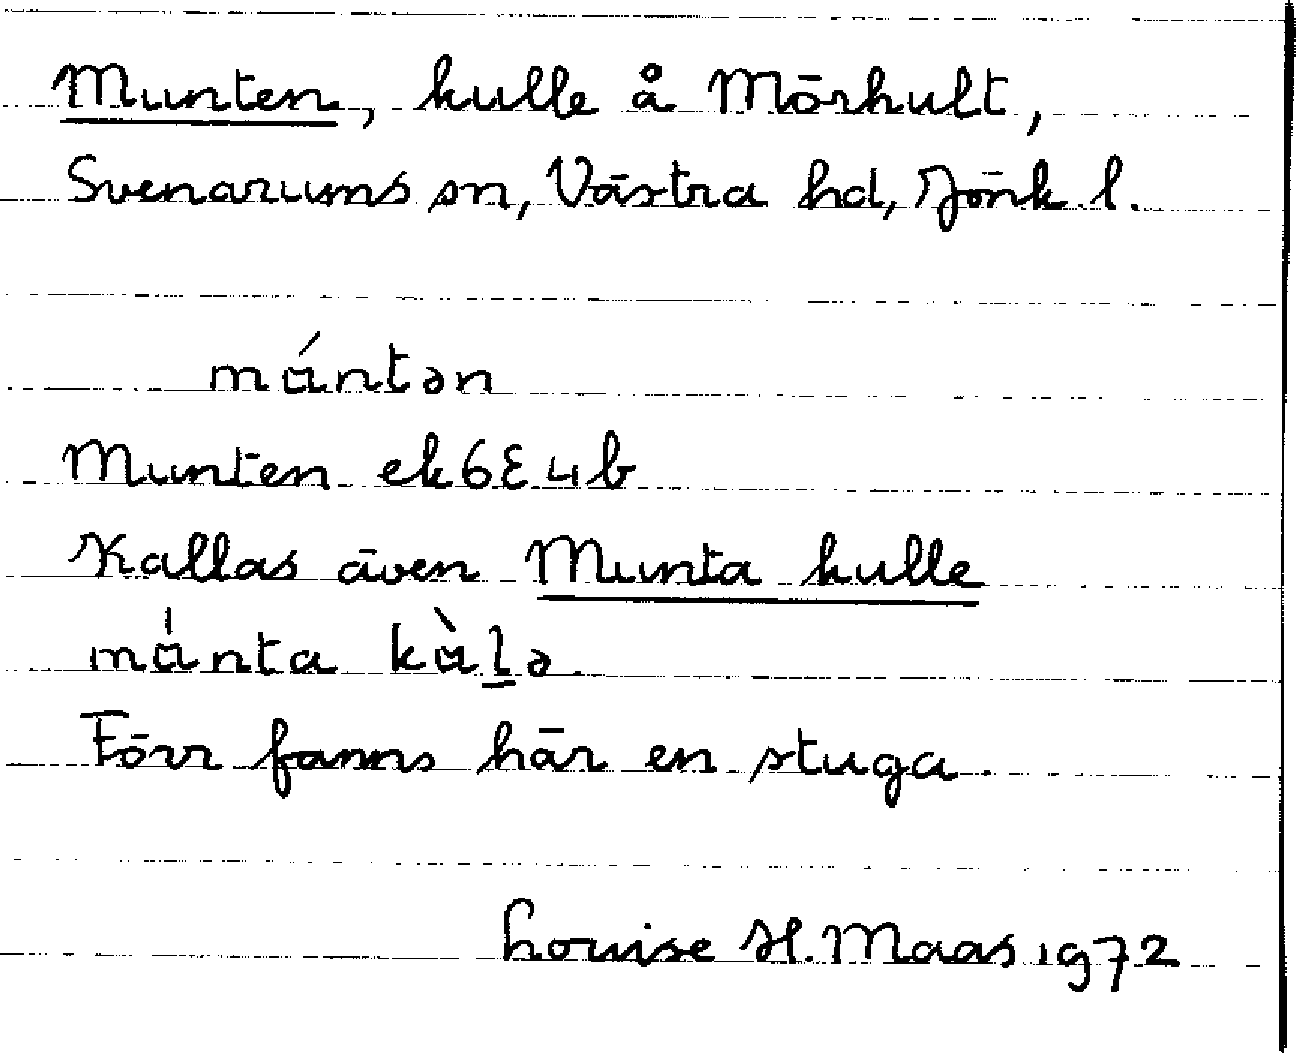 Munten, kulle å Mörhult,
Svenarums sn, Västra hd, Jönk. l.
mɑ́ntən
Munten ek 6E4b
Kallas även Munta kulle
mɑ́nta kɑ̀l̲ə
Förr fanns här en stuga
Louise H. Maas 1972